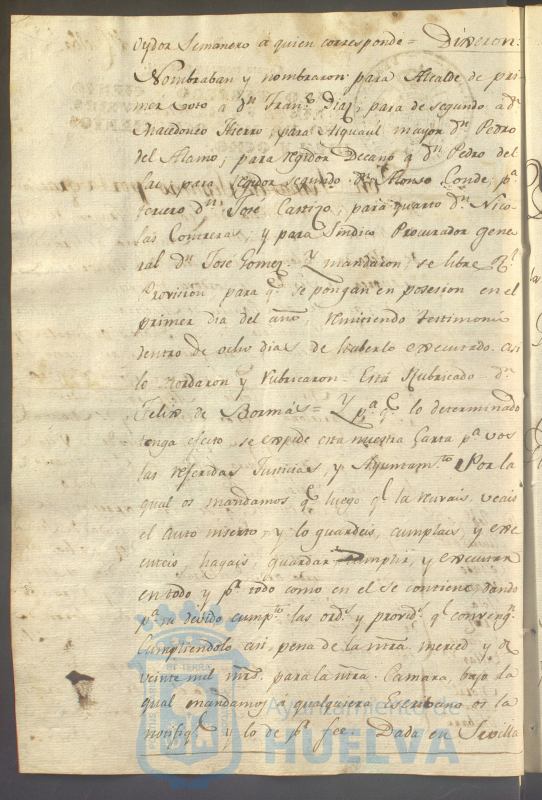 oydor Semanero à quien corresponde = Dixeron:
Nombraban y nombraron para Alcalde de pri-
mer Voto a dn. Franco. Diaz; para de segundo a dn.
Macedonio Hierro; para Alguacil mayor dn. Pedro
del Alamo; para regidor Decano a dn. Pedro del
para regidor segundo dn. Alonso Conde; pa.
tercero dn. José Castizo; para quarto dn. Nico-
las Contreras; y para Sindico Procurador gene-
ral dn. Jose Gomez. Y mandaron, se libre Rl.
Provision para qe. se pongan en posesion en el
primer dia del año, remitiendo testimonio
dentro de ocho dias de haberlo executado. Asi
lo acordaron y rubricaron = Está rubricado = dn.
Felix de Bormás = Y pa. qe. lo determinado
tenga efecto, se expide esta nuestra Carta pa. vos
las referidas Justicias, y Ayuntamto. Por la
qual os mandamos qe. luego qe. la recivais, veais
el auto inserto, y lo guardeis, cumplais, y exe-
cuteis, hagais, guardar, cumplir, y executar
en todo y pr. todo como en el se contiene, dando
pa. su devido cumpto. las ords. y provids. qe. convengn.
Cumpliendolo asi, pena de la ntra. merced y de
veinte mil mrs. para la ntra. Camara, bajo la
qual mandamos à qualquiera Escribano os la
notifiqe. y lo de pr. fee. Dada en Sevilla
Ayuntamiento de
HUELVA